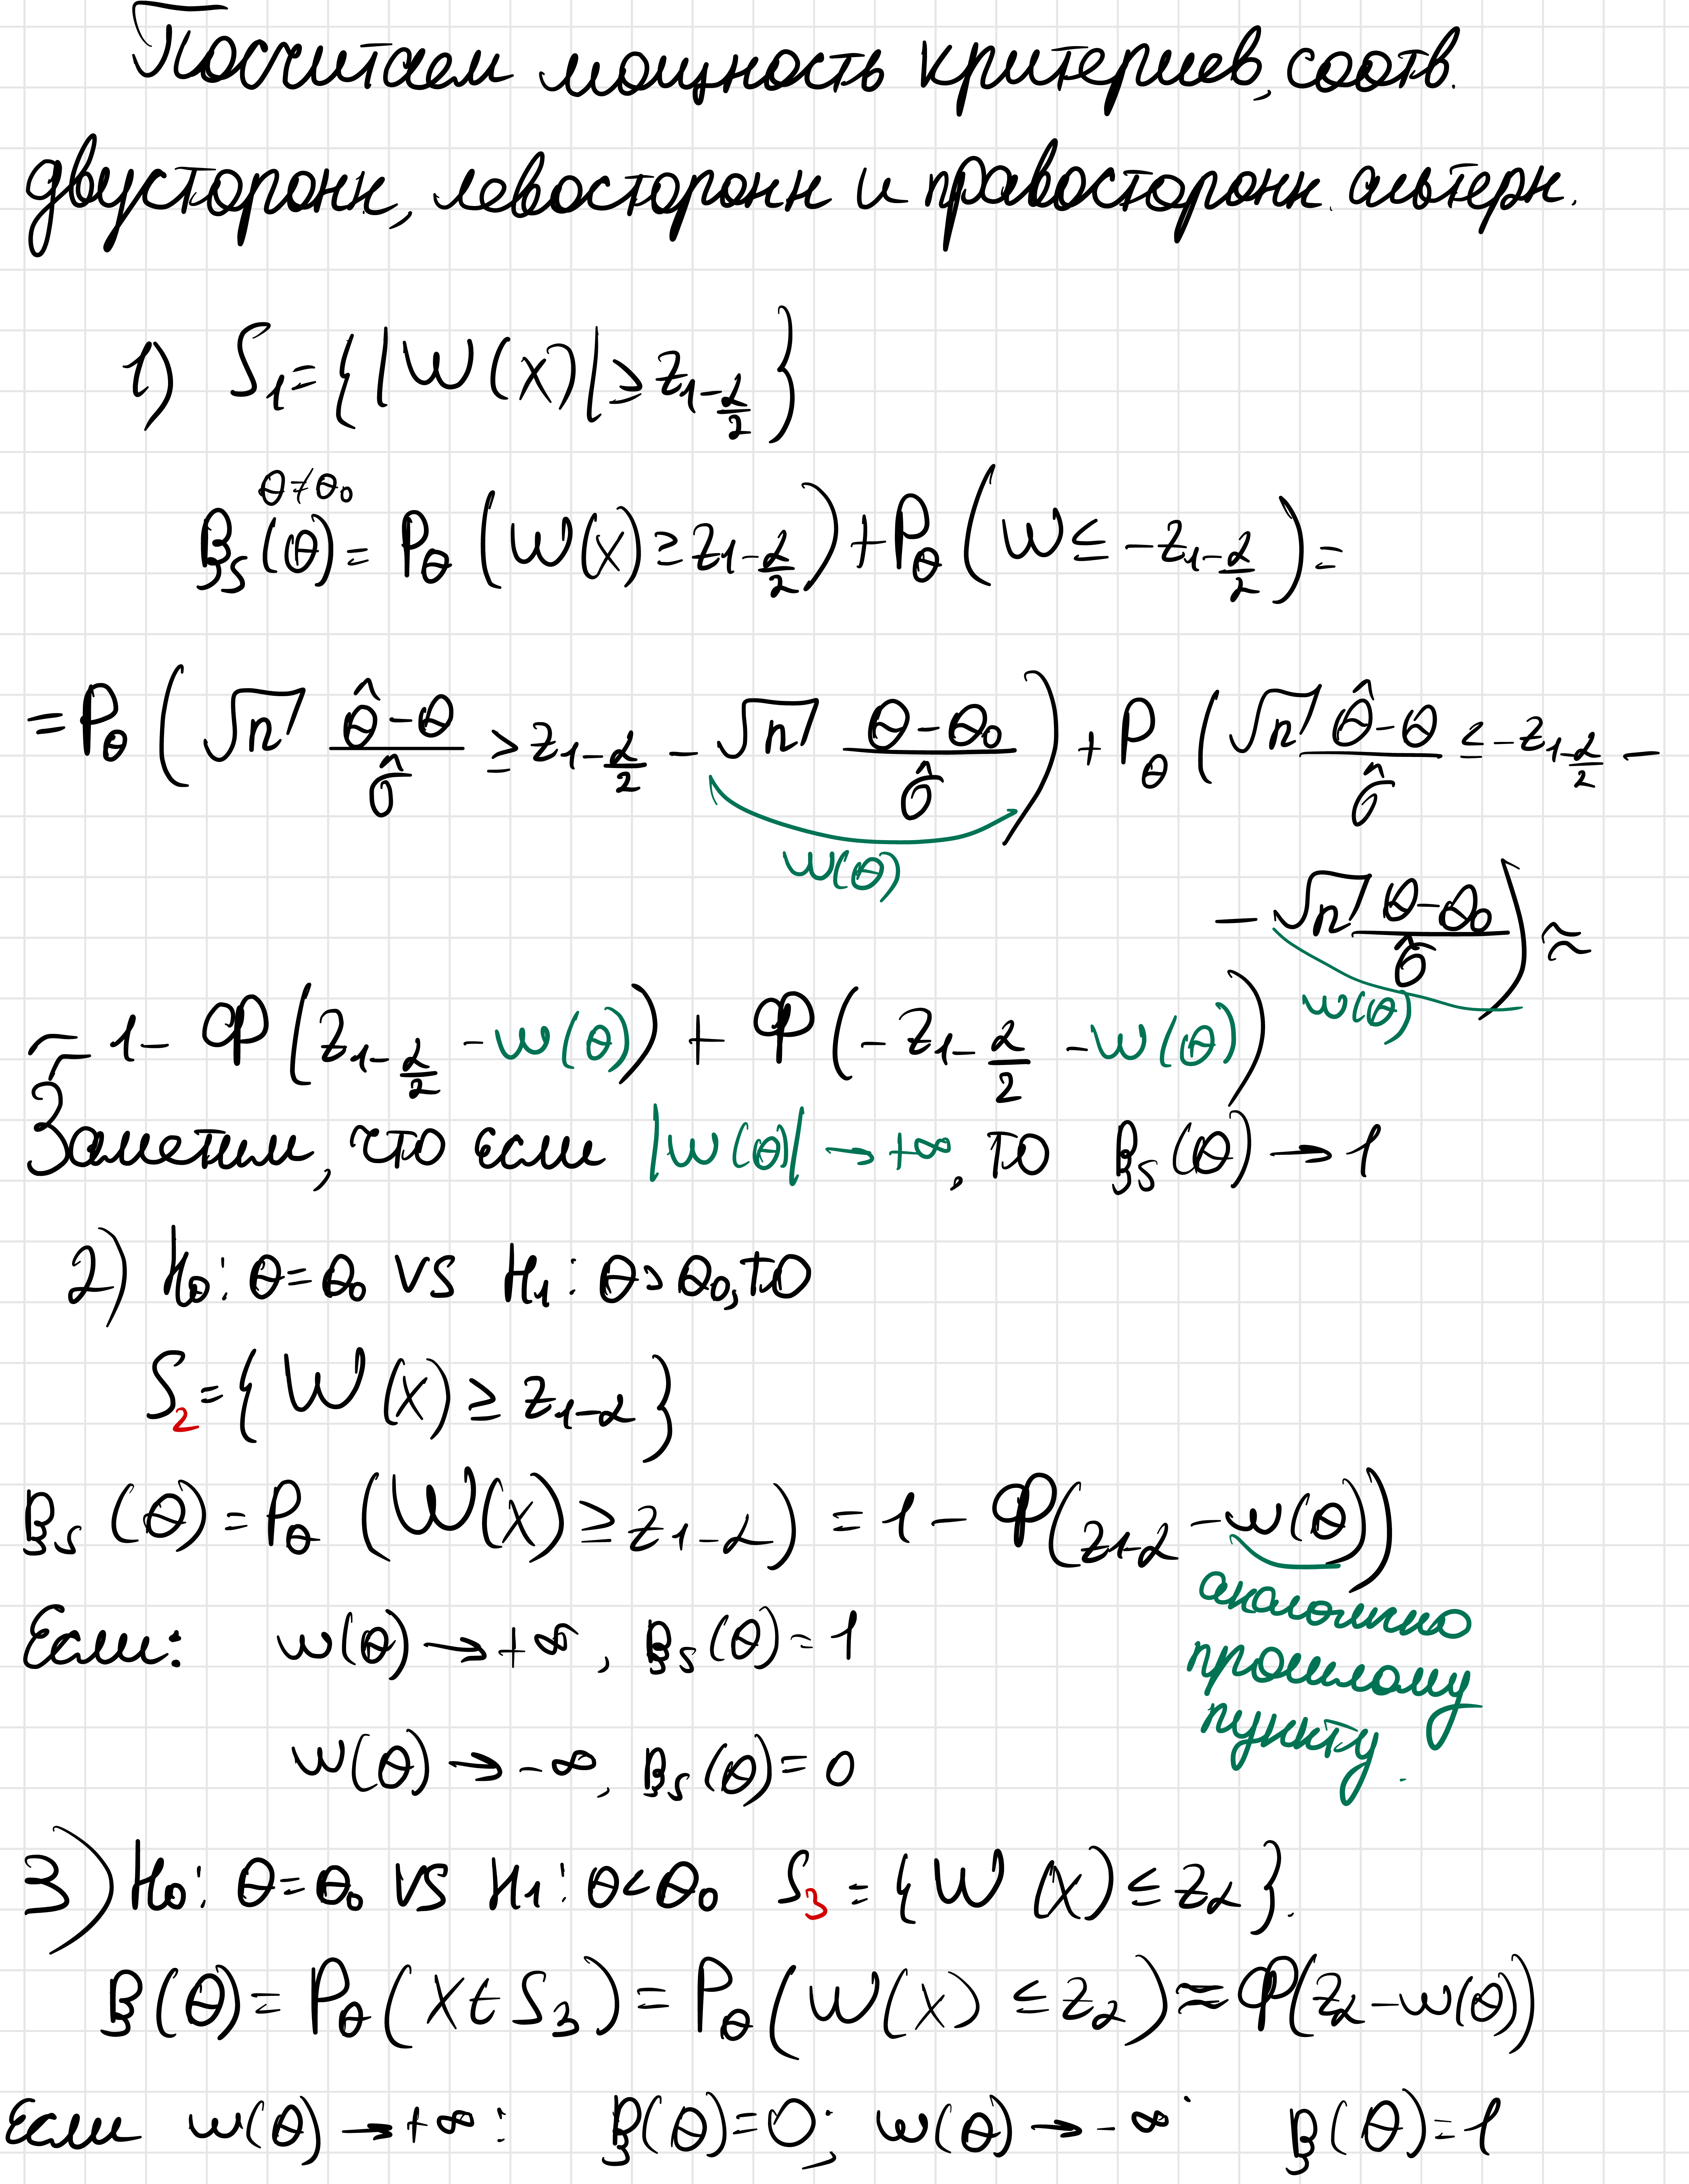 Посчитаем мощность критериев, соотв.
двусторонн, левосторонн и правосторонн. альтерн.
1) S₁={|W(X)|≥z_{1-α/2}}
θ≠θ₀
β_S(θ)=P_θ(W(X)≥z_{1-α/2})+P_θ(W≤-z_{1-α/2})=
=P_θ(√n (θ̂-θ)/σ̂ ≥z_{1-α/2}-√n (θ-θ₀)/σ̂)+P_θ(√n (θ̂-θ)/σ̂ ≤-z_{1-α/2}-
w(θ)
-√n (θ-θ₀)/σ̂)≈
w(θ)
≈1-Φ(z_{1-α/2}-w(θ))+Φ(-z_{1-α/2}-w(θ))
Заметим, что если |w(θ)|→+∞, то β_S(θ)→1
2) H₀: θ=θ₀ vs H₁: θ>θ₀, то
S₂={W(X)≥z_{1-α}}
β_S(θ)=P_θ(W(X)≥z_{1-α})=1-Φ(z_{1-α}-w(θ))
аналогично
прошлому
пункту.
Если: w(θ)→+∞, β_S(θ)=1
w(θ)→-∞, β_S(θ)=0
3) H₀: θ=θ₀ vs H₁: θ<θ₀ S₃={W(X)≤z_α}.
β(θ)=P_θ(X∈S₃)=P_θ(W(X)≤z_α)≈Φ(z_α-w(θ))
Если w(θ)→+∞: β(θ)=0; w(θ)→-∞: β(θ)=1